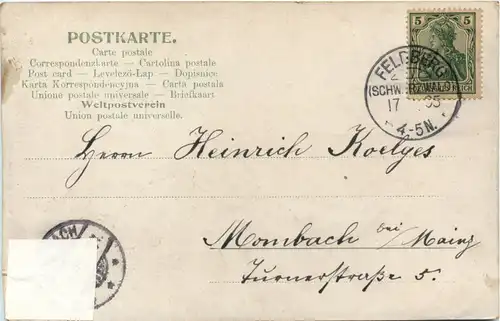 POSTKARTE.
Carte postale
Correspondenzkarte — Cartolina postale
Post card — Levelező-Lap — Dopisnice
Karta Korrespondencyjna — Carta postala
Unione postale universale — Briefkaart
Weltpostverein
Union postale universelle.
5 5
REICH
FELDBERG
(SCHWARZWALD)
17
4-5N.
Herrn Heinrich Koelges
Mombach bei Mainz
Turnerstraße 5.
BACH